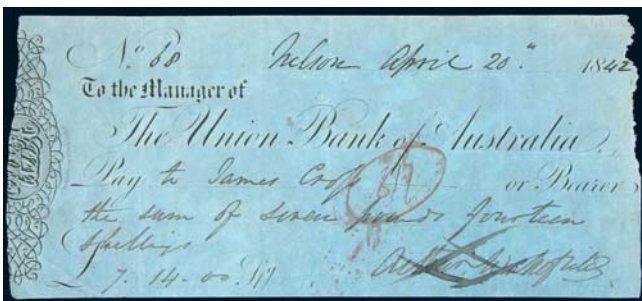 No. 68 Nelson April 20th 1842
To the Manager of
The Union Bank of Australia
Pay to James Cross or Bearer
the sum of seven pounds fourteen
shillings
£ 7. 14. 00
Arthur Wakefield